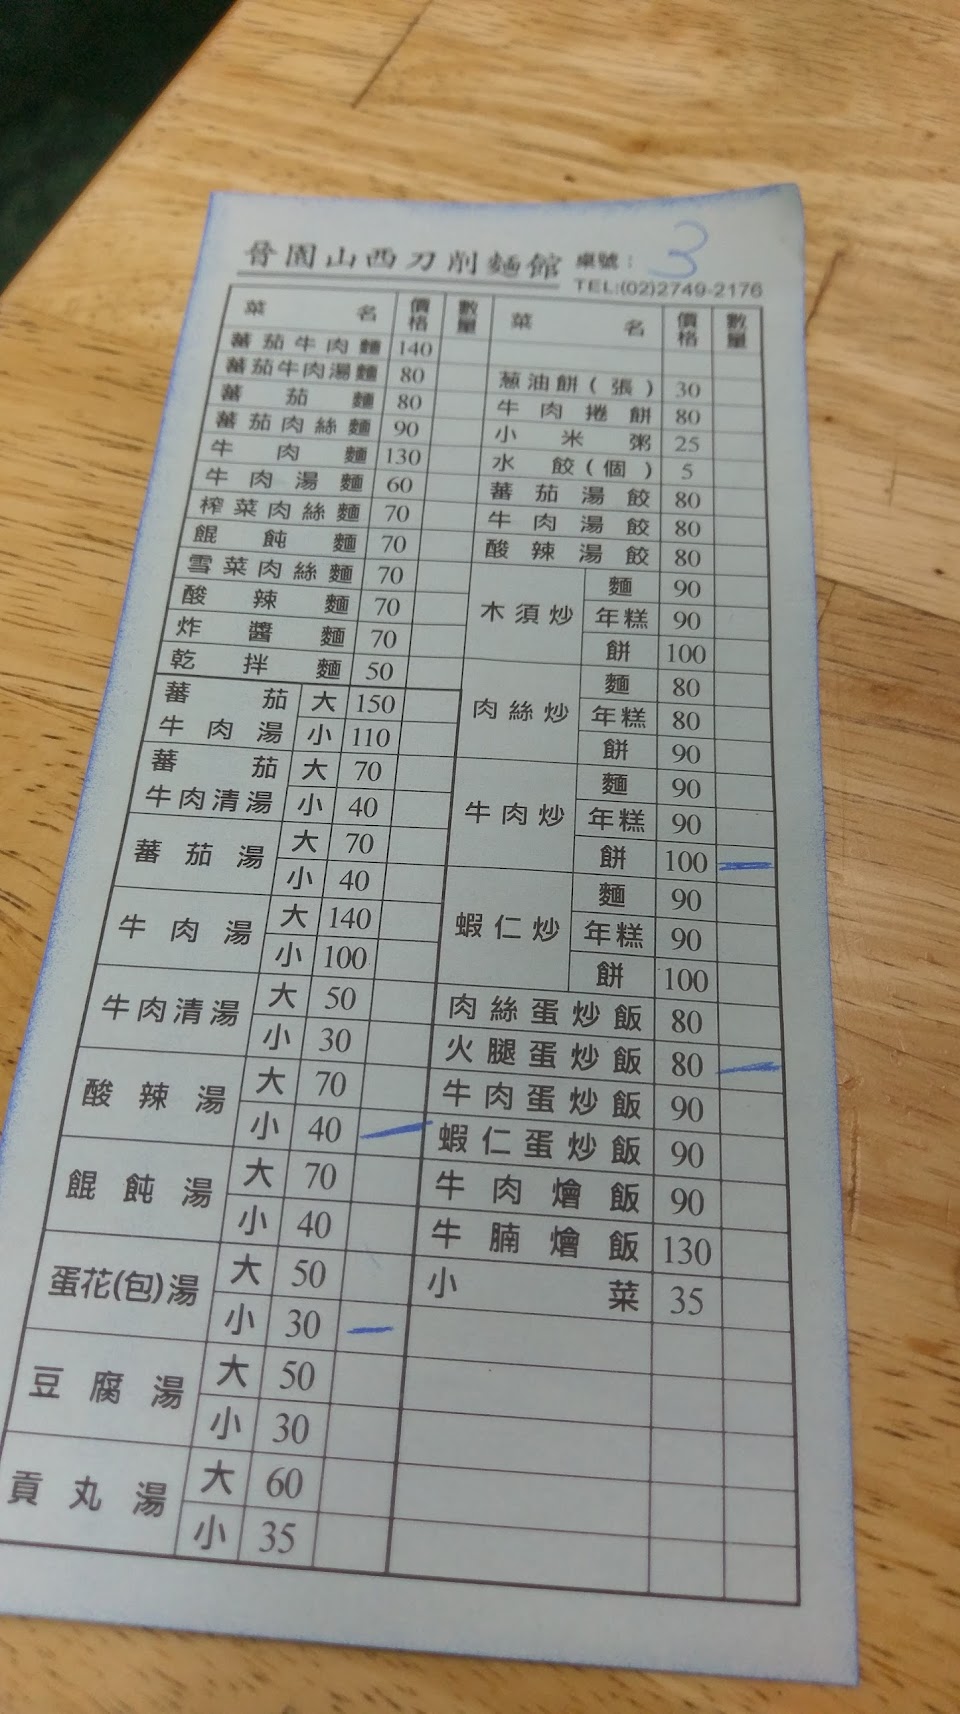 晉園山西刀削麵館 桌號： 3
TEL:(02)2749-2176
菜名 價格 數量
蕃茄牛肉麵 140
蕃茄牛肉湯麵 80
蕃茄麵 80
蕃茄肉絲麵 90
牛肉麵 130
牛肉湯麵 60
榨菜肉絲麵 70
餛飩麵 70
雪菜肉絲麵 70
酸辣麵 70
炸醬麵 70
乾拌麵 50
蕃茄牛肉湯 大 150
小 110
蕃茄牛肉清湯 大 70
小 40
蕃茄湯 大 70
小 40
牛肉湯 大 140
小 100
牛肉清湯 大 50
小 30
酸辣湯 大 70
小 40 一
餛飩湯 大 70
小 40
蛋花(包)湯 大 50
小 30 一
豆腐湯 大 50
小 30
貢丸湯 大 60
小 35
菜名 價格 數量
蔥油餅(張) 30
牛肉捲餅 80
小米粥 25
水餃(個) 5
蕃茄湯餃 80
牛肉湯餃 80
酸辣湯餃 80
木須炒 麵 90
年糕 90
餅 100
肉絲炒 麵 80
年糕 80
餅 90
牛肉炒 麵 90
年糕 90
餅 100 一
蝦仁炒 麵 90
年糕 90
餅 100
肉絲蛋炒飯 80
火腿蛋炒飯 80 一
牛肉蛋炒飯 90
蝦仁蛋炒飯 90
牛肉燴飯 90
牛腩燴飯 130
小菜 35